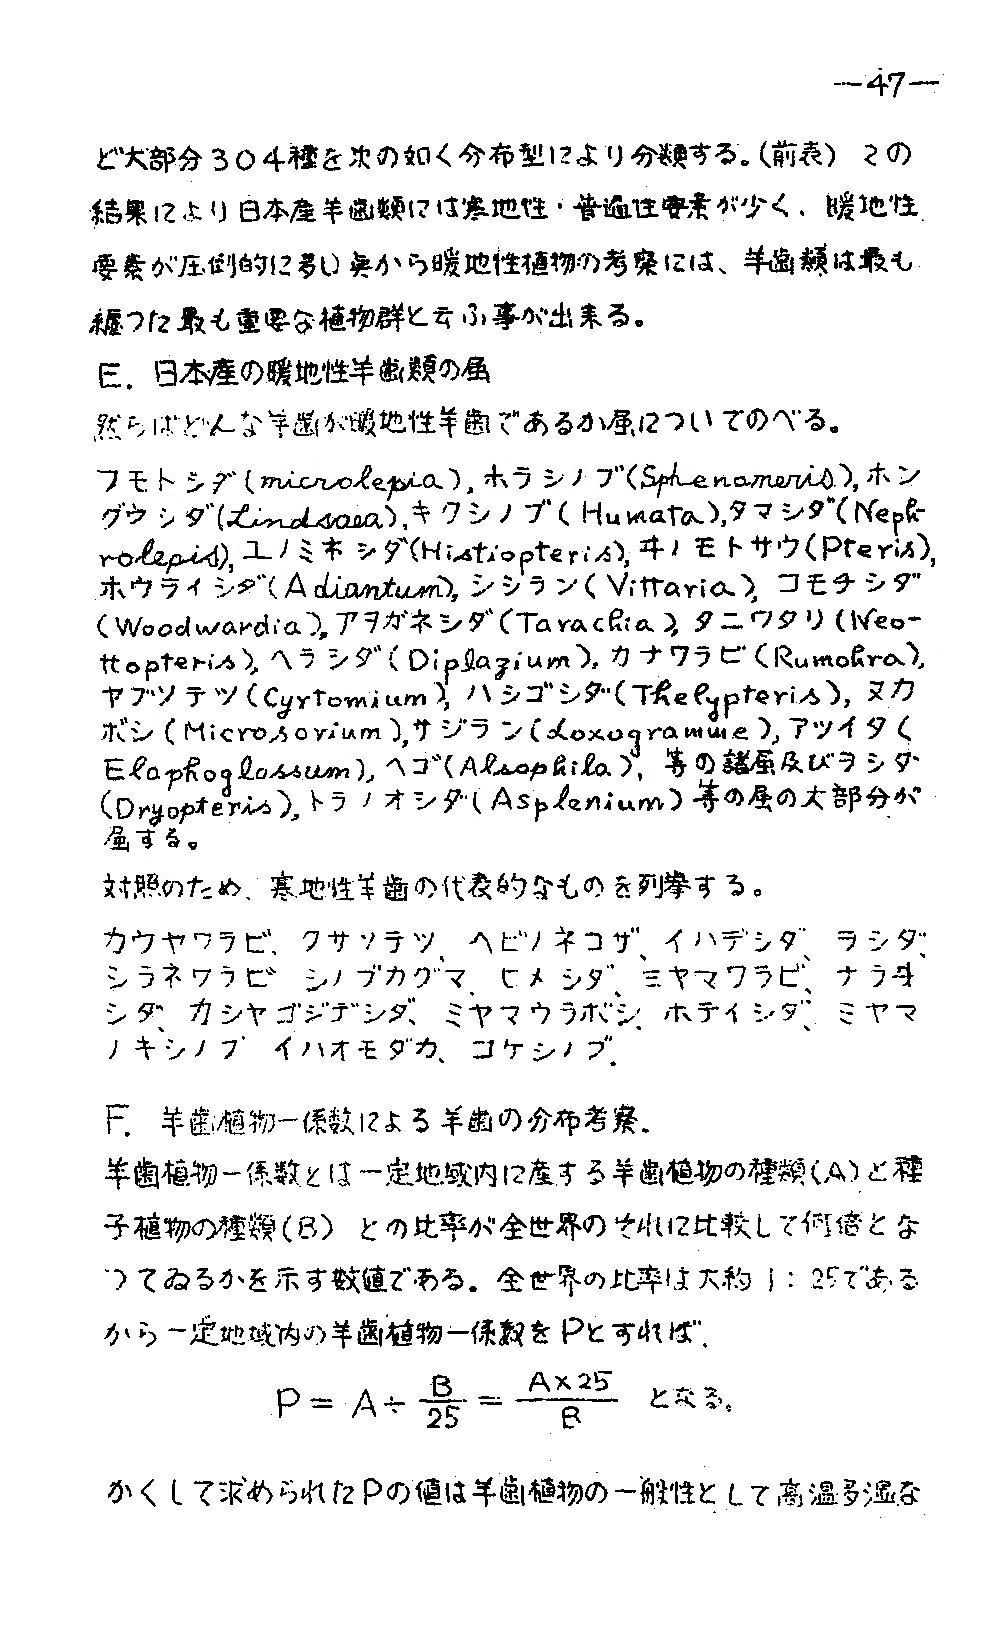 —47—
ど大部分304種を次の如く分布型により分類する。(前表) この
結果により日本産羊歯類には寒地性・普遍性要素が少く、暖地性
要素が圧倒的に多い奌から暖地性植物の考察には、羊歯類は最も
纒つた最も重要な植物群と云ふ事が出来る。
E. 日本産の暖地性羊歯類の属
然らばどんな羊歯が暖地性羊歯であるか属についてのべる。
フモトシダ(microlepia), ホラシノブ(Sphenomeris), ホン
グウシダ(Lindsaea), キクシノブ(Humata), タマシダ(Neph-
rolepis), ユノミネシダ(Histiopteris), ヰノモトサウ(Pteris),
ホウライシダ(Adiantum), シシラン(Vittaria), コモチシダ
(Woodwardia), アヲガネシダ(Tarachia), タニワタリ(Neo-
ttopteris), ヘラシダ(Diplazium), カナワラビ(Rumohra),
ヤブソテツ(Cyrtomium), ハシゴシダ(Thelypteris), ヌカ
ボシ(Microsorium), サジラン(Loxogramme), アツイタ(
Elaphoglossum), ヘゴ(Alsophila), 等の諸属及びヲシダ
(Dryopteris), トラノオシダ(Asplenium)等の属の大部分が
属する。
対照のため、寒地性羊歯の代表的なものを列挙する。
カウヤワラビ、クサソテツ、ヘビノネコザ、イハデシダ、ヲシダ、
シラネワラビ シノブカグマ、ヒメシダ、ミヤマワラビ、ナラヰ
シダ、カシヤゴジデシダ、ミヤマウラボシ、ホテイシダ、ミヤマ
ノキシノブ イハオモダカ、コケシノブ.
F. 羊歯植物一係数による羊歯の分布考察.
羊歯植物一係数とは一定地域内に産する羊歯植物の種類(A)と種
子植物の種類(B) との比率が全世界のそれに比較して何倍とな
つてゐるかを示す数値である。全世界の比率は大約1:25である
から一定地域内の羊歯植物一係数をPとすれば、
P = A÷B/25 = A×25/B となる。
かくして求められたPの値は羊歯植物の一般性として高温多湿な